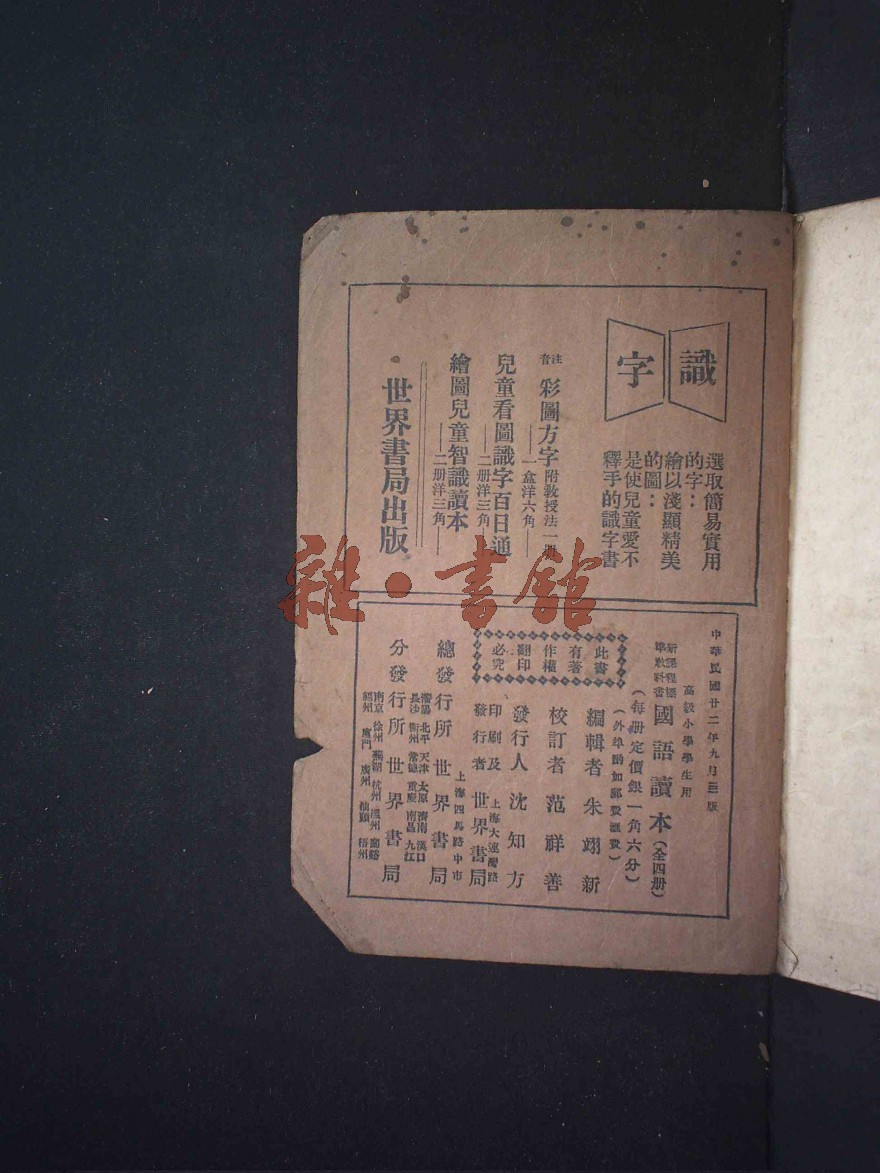 識字
選取簡易實用
的字：
繪以淺顯精美
的圖：
是使兒童愛不
釋手的識字書
注音 彩圖方字 附教授法一冊
——一盒洋六角——
兒童看圖識字百日通
——二册洋三角——
繪圖兒童智識讀本
——二册洋三角——
世界書局出版
中華民國廿二年九月三版
高級小學學生用
新課程標準教科書 國語讀本（全四册）
（每册定價銀一角六分）
（外埠酌加郵費匯費）
此書
有著
作權
翻印
必究
編輯者 朱翊新
校訂者 范祥善
發行人 沈知方
上海大連灣路
印刷及發行者 世界書局
上海四馬路中市
總發行所 世界書局
瀋陽 北平 天津 太原 濟南 漢口
長沙 衡州 常德 重慶 南昌 九江
分發行所 世界書局
南京 徐州 蕪湖 杭州 溫州 蘭谿
福州 廈門 廣州 汕頭 梧州
雜·書館